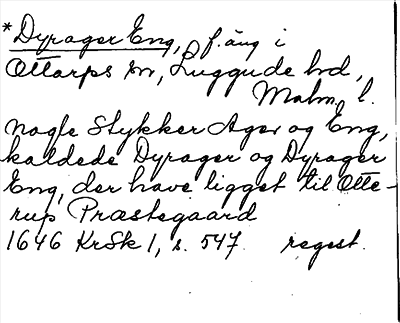 *Dyrager Eng, f. äng i
Ottarps sn, Luggude hd,
Malm. l.
nogle Stykker Ager og Eng,
kaldede Dyrager og Dyrager
Eng, der have ligget til Otte-
rup Præstegaard
1646 KrSk 1, s. 547. regest.